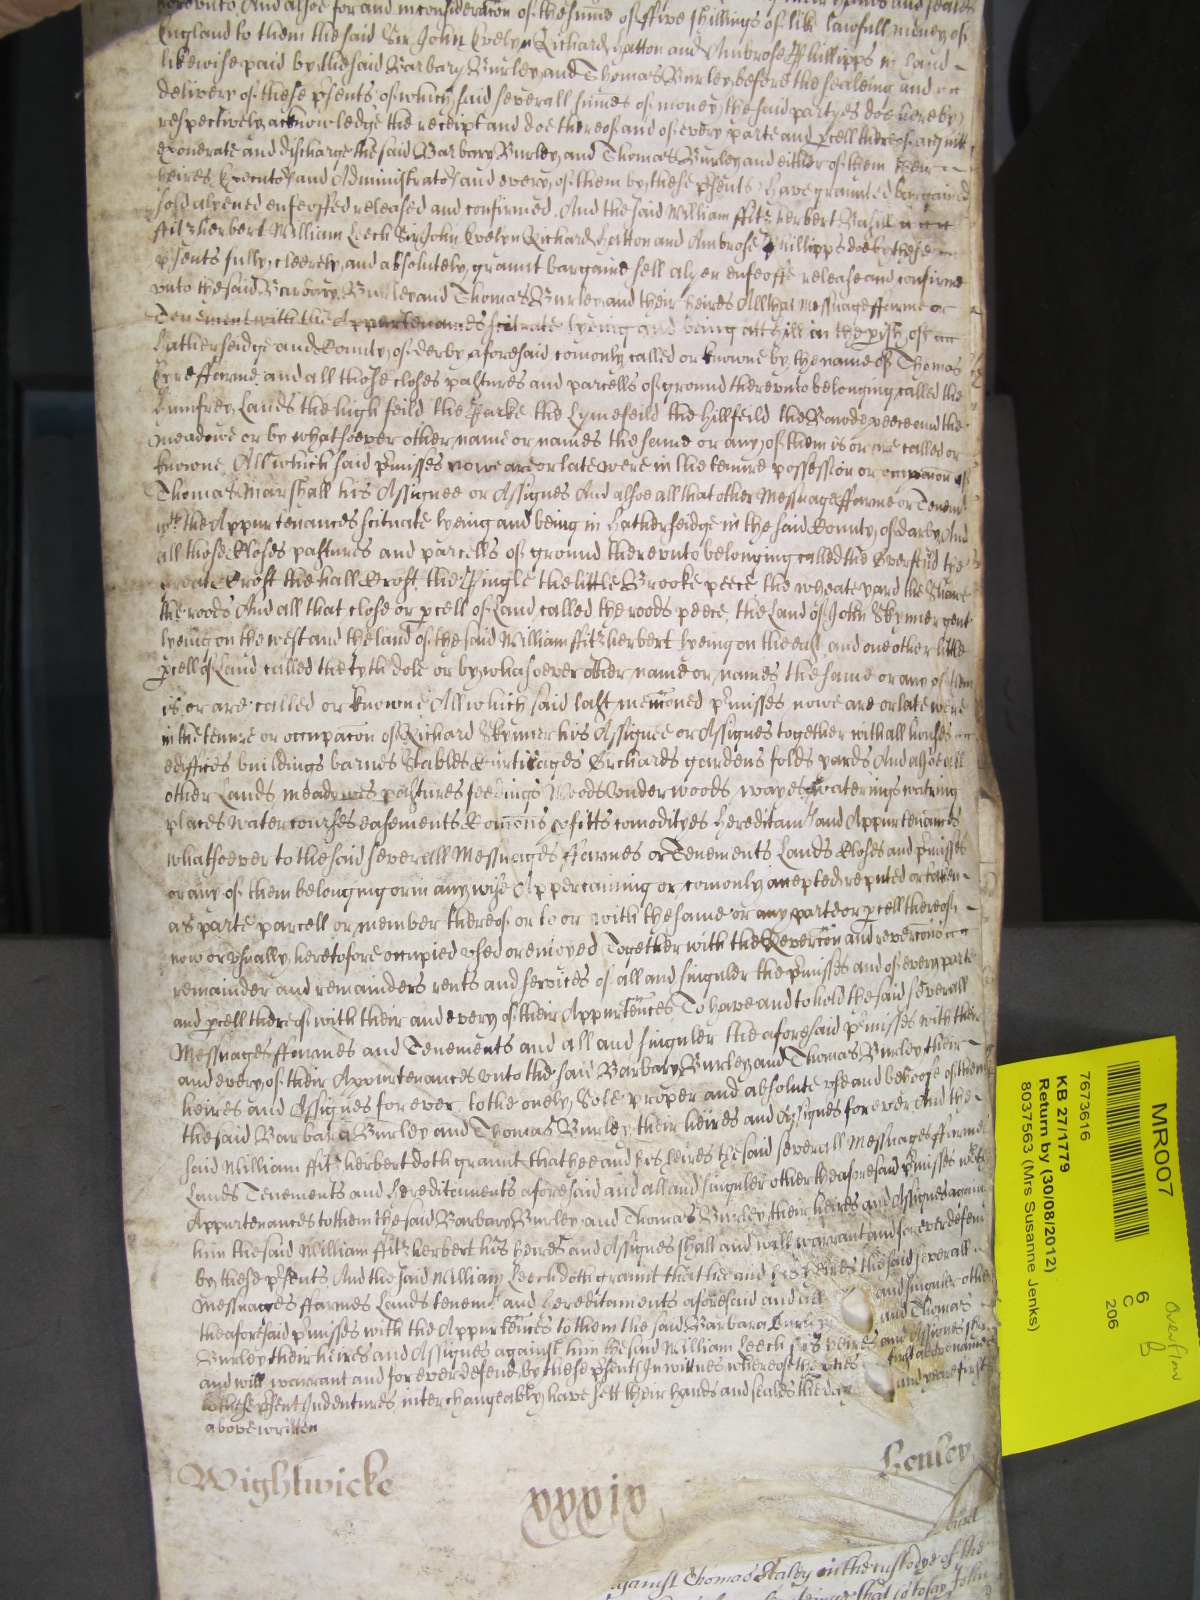 therevnto And alsoe for and in consideracon of the sume of ffive shillings of like lawfull money of
England to them the said Sir John Evelyn Richard Hatton and Ambrose Phillipps in hand
likewise paid by the said Barbary Burley and Thomas Burley before the sealeing and
delivery of these psents of which said severall sumes of money the said partyes doe hereby
respectively acknowledge the receipt and doe thereof and of every parte and pcell thereof acquitt
exonerate and discharge the said Barbary Burley and Thomas Burley and either of them their
heires Executors and Administrators and every of them by these psents Have graunted bargained
sold alyened enfeoffed released and confirmed And the said William ffitzherbert Basill
ffitzherbert William Leech Sir John Evelyn Richard Hatton and Ambrose Phillipps doe by these
psents fully cleerely and absolutely graunt bargaine sell alyen enfeoffe release and confirme
vnto the said Barbary Burley and Thomas Burley and their heires All that Messuage ffarme or
Tenement with the Appurtenances scituate lyeing and being att hill in the pish of
Hatherseidge and County of derby aforesaid comonly called or knowne by the name of Thomas
Eyre ffarme and all those closes pastures and parcells of ground therevnto belonging called the
Humfrey Lands the high feild the Parke the Lymefeild the Hillfeild the peece and the
meadowe or by whatsoever other name or names the same or any of them is or are called or
knowne All which said pmisses nowe are or late were in the tenure possession or occupacon of
Thomas Marshall his Assignee or Assignes And alsoe all that other Messuage ffarme or Tenemt
wth the Appurtenances scituate lyeing and being in Hatherseidge in the said County of darby And
all those Closes pastures and parcells of ground therevnto belonging called the Overfeild the
Croft the hall Croft the Pingle the little Brooke peece the wheate yard the
the roods And all that close or pcell of Land called the roods peece the Land of John Skynner gent
lyeing on the west and the land of the said William ffitzherbert lyeing on the east and one other little
pcell of Land called the tyth dole or by whatsoever other name or names the same or any of them
is or are called or knowne All which said last menconed pmisses nowe are or late were
in the tenure or occupacon of Richard Skynner his Assignee or Assignes together with all houses
edifices buildings barnes Stables Curtilages Orchards gardens folds yards And alsoe all
other Lands meadowes pastures feedings Woods Vnderwoods wayes waterings watring
places Watercourses easements Comons pfitts comodityes Hereditamts and Appurtenances
whatsoever to the said severall Messuages ffarmes or Tenements Lands Closes and pmisses
or any of them belonging or in any wise Appertaining or comonly accepted reputed or taken
as parte parcell or member thereof or to or with the same or any parte or pcell thereof
now or vsually heretofore occupied vsed or enioyed Together with the Revercon and revercons
remainder and remainders rents and services of all and singuler the pmisses and of every parte
and pcell thereof with their and every of their Appurtences To have and to hold the said severall
Messuages ffarmes and Tenements and all and singuler the aforesaid pmisses with their
and every of their Appurtenances vnto the said Barbary Burley and Thomas Burley their
heires and Assignes for ever to the onely Sole proper and absolute vse and behoofe of them
the said Barbara Burley and Thomas Burley their heires and Assignes for ever And the
said William ffitzherbert doth graunt that hee and his heires the said severall Messuages ffarmes
Lands Tenements and Hereditaments aforesaid and all and singuler other the aforesaid pmisses with
Appurtenances to them the said Barbary Burley and Thomas Burley their heires and Assignes against
him the said William ffitzherbert his heires and Assignes shall and will warrant and for ever defend
by these psents And the said William Leech doth graunt that hee and his heires the said severall
Messuages ffarmes Lands tenemts and Hereditaments aforesaid and all and singuler other
the aforesaid pmisses with the Appurtences to them the said Barbara Burley and Thomas
Burley their heires and Assignes against him the said William Leech his heires and Assignes shall
and will warrant and for ever defend by these psents In witnes whereof the pties first above named
to these psent Indentures interchangeably have sett their hands and seales the day and yeare first
above written
Wightwicke xxxix Henley
against Thomas Staley in the custodye of the
that is to say John
MR007
7673616
KB 27/1779
Return by (30/08/2012)
8037563 (Mrs Susanne Jenks)
6
C
206